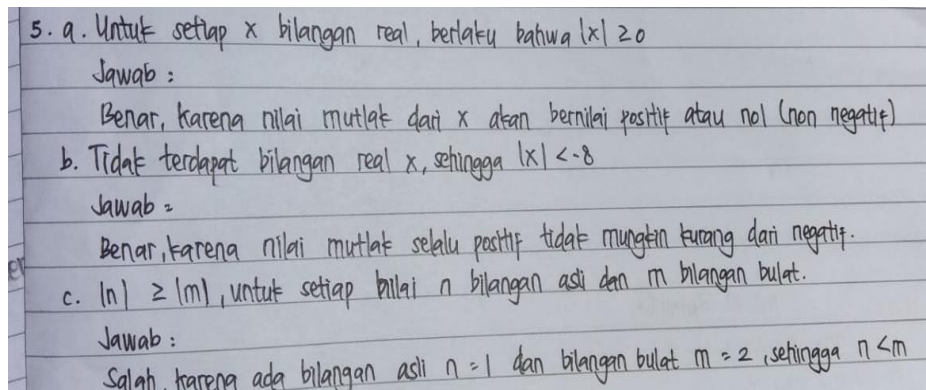 5. a. Untuk setiap x bilangan real, berlaku bahwa |x| ≥ 0
Jawab :
Benar, karena nilai mutlak dari x akan bernilai positif atau nol (non negatif)
b. Tidak terdapat bilangan real x, sehingga |x| < -8
Jawab :
Benar, karena nilai mutlak selalu positif tidak mungkin kurang dari negatif.
c. |n| ≥ |m|, untuk setiap nilai n bilangan asli dan m bilangan bulat.
Jawab :
Salah, karena ada bilangan asli n = 1 dan bilangan bulat m = 2, sehingga n < m